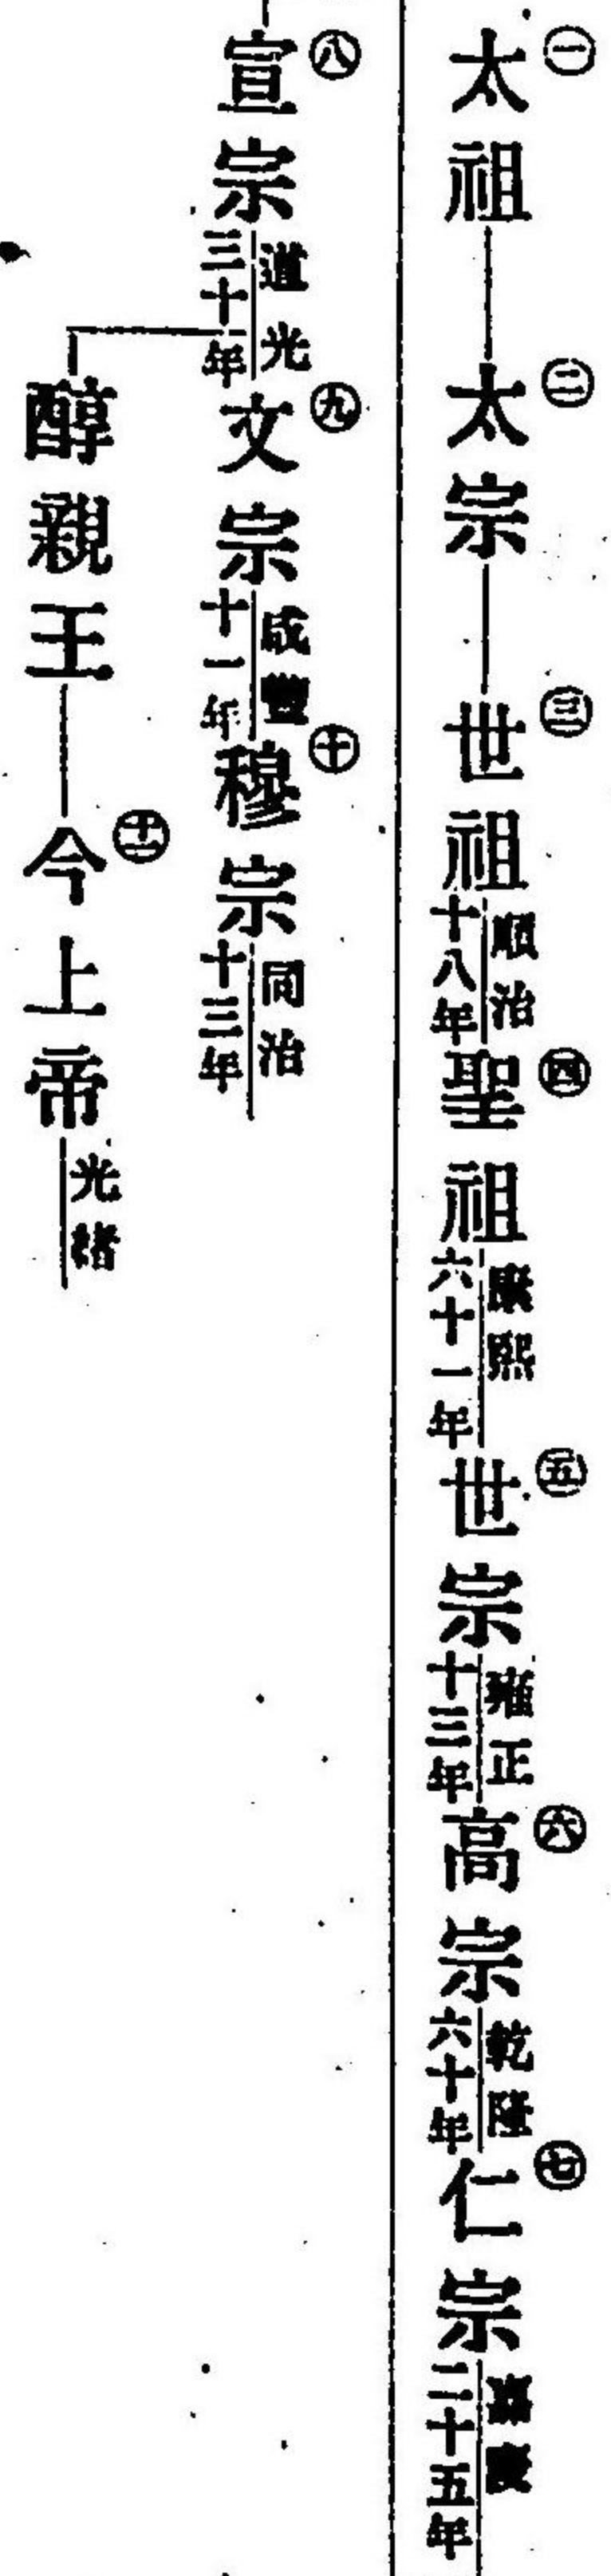 ㊀太祖
㊁太宗
㊂世祖
順治
十八年
㊃聖祖
康熙
六十一年
㊄世宗
雍正
十三年
㊅高宗
乾隆
六十年
㊆仁宗
嘉慶
二十五年
㊇宣宗
道光
三十年
㊈文宗
咸豐
十一年
㊉穆宗
同治
十三年
醇親王
十一
今上帝
光緒